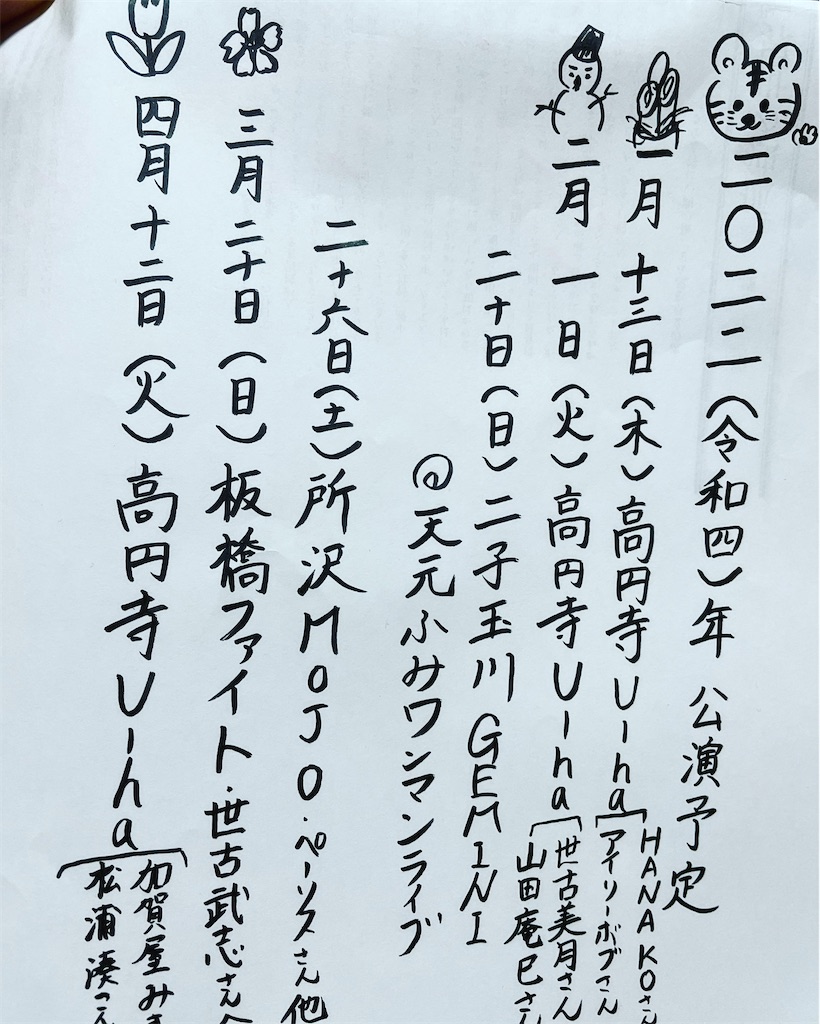 二〇二二(令和四)年 公演予定
一月 十三日(木)高円寺U-ha
HANAKOさん
アイリーボブさん
二月 一日(火)高円寺U-ha
世古美月さん
山田庵巳さん
二十日(日)二子玉川GEMINI
@天元ふみワンマンライブ
二十六日(土)所沢MOJO・ペーソスさん他
三月 二十日(日)板橋ファイト・世古武志さん
四月 十二日(火)高円寺U-ha
加賀屋み
松浦湊